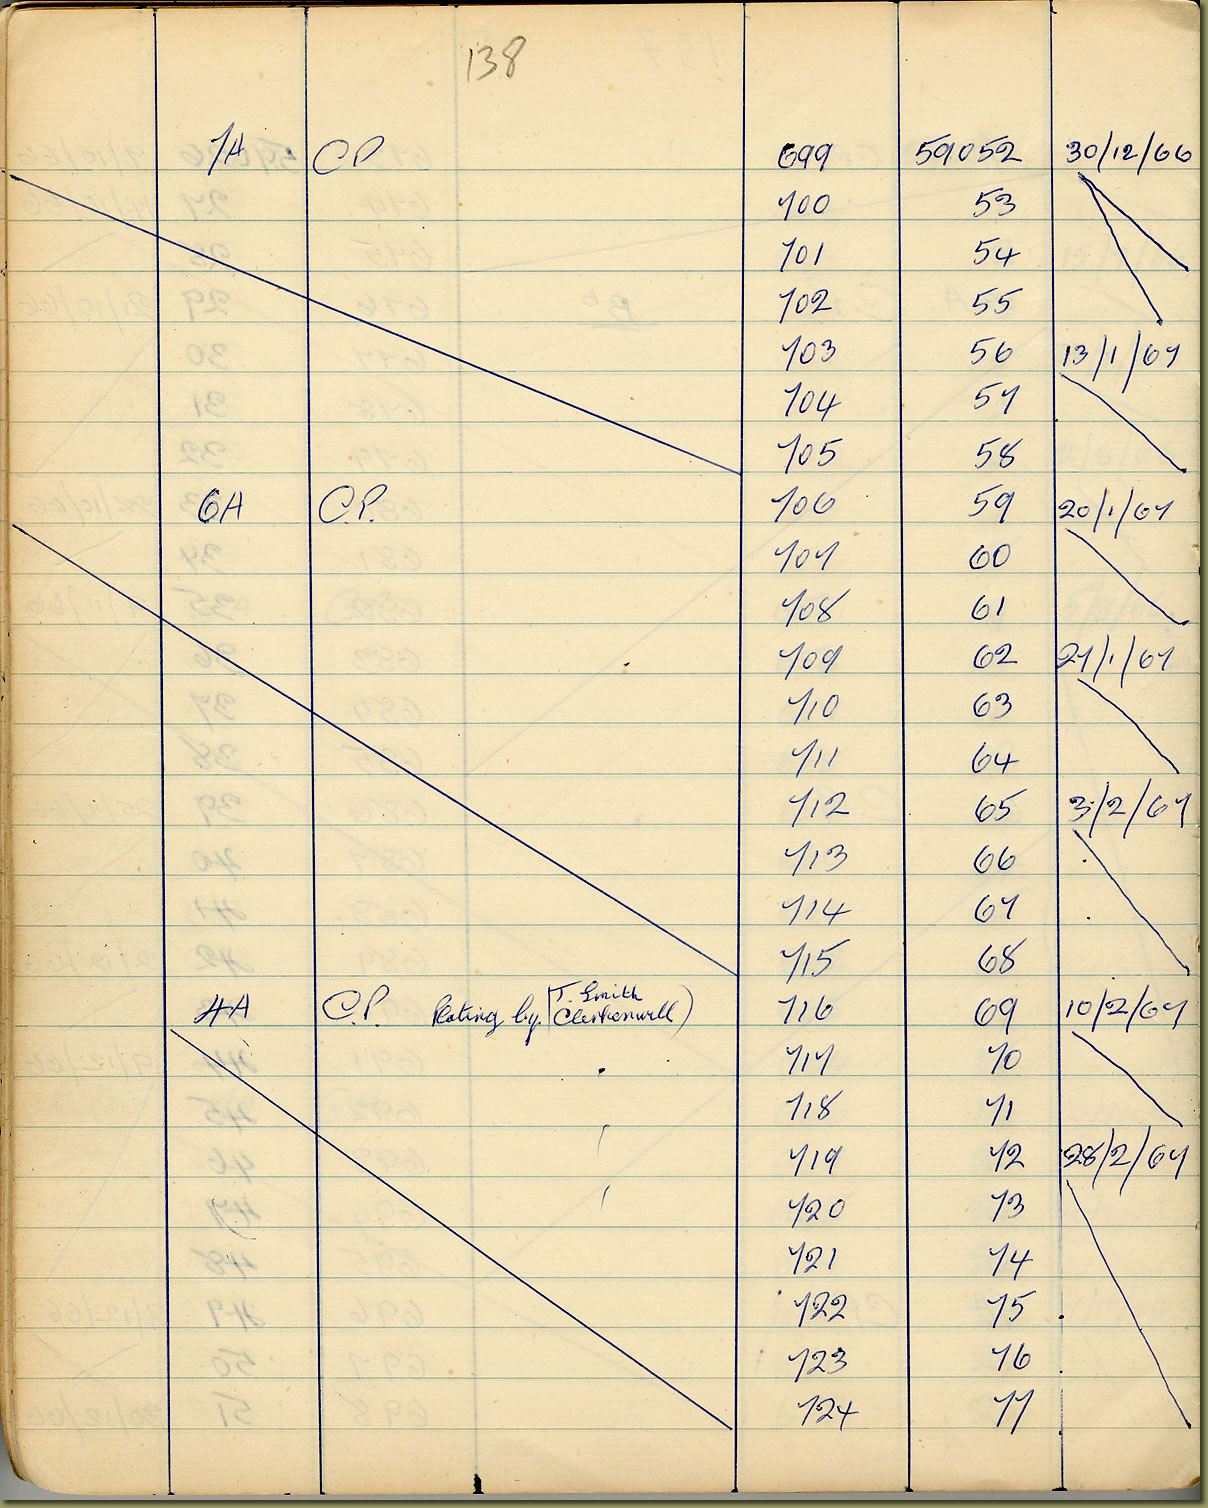 138
7A C.P. 699 59052 30/12/66
700 53
701 54
702 55
703 56 13/1/67
704 57
705 58
6A C.P. 706 59 20/1/67
707 60
708 61
709 62 27/1/67
710 63
711 64
712 65 3/2/67
713 66
714 67
715 68
4A C.P. Plating by. (T. Smith Clerkenwell) 716 69 10/2/67
717 70
718 71
719 72 28/2/67
720 73
721 74
722 75
723 76
724 77